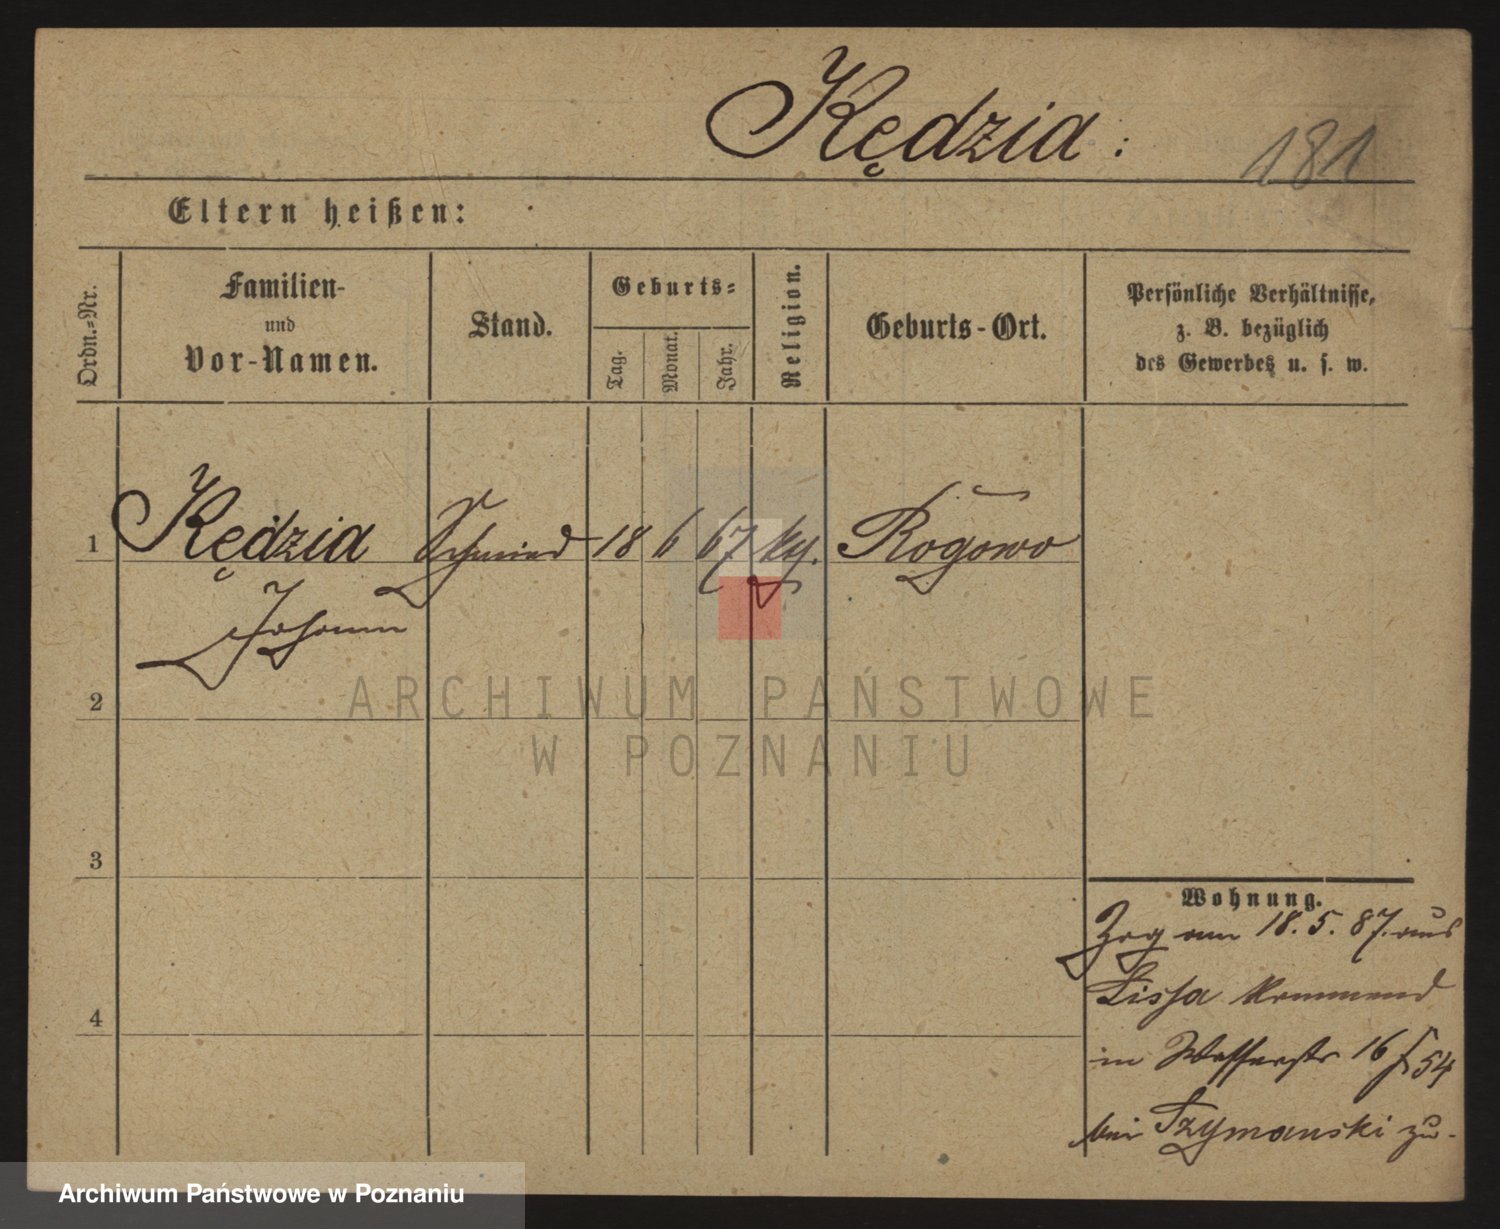 Kędzia:
181
Eltern heißen:
Ordn.=Nr.
Familien-
und
Vor-Namen.
Stand.
Geburts=
Tag.
Monat.
Jahr.
Religion.
Geburts-Ort.
Persönliche Verhältnisse,
z. B. bezüglich
des Gewerbes u. s. w.
1
Kędzia Schmied 18 6 67 Rogowo
Johann
ARCHIWUM PAŃSTWOWE
W POZNANIU
2
3
4
Wohnung.
Zog am 18. 5. 87. aus
Lissa kommend
in Wasserstr 16 54
bei Szymanski zu.
Archiwum Państwowe w Poznaniu